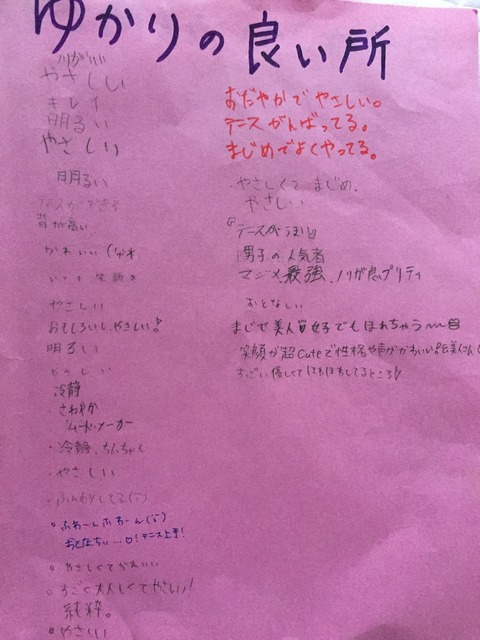 ゆかりの良い所
ノリがいい
やさしい
キレイ
明るい
やさしい
明るい
背が高い
かわいい
いつも笑顔
やさしい
おもしろいしやさしい!
明るい
やさしい
冷静
・さわやか
ムードメーカー
・冷静、
・やさしい
ふわふわしてる
ふわーんふわーん
おとなしい…♡!テニス上手!
やさしくてかわいい
すごく大人しくてやさしい!
純粋。
やさしい
おだやかでやさしい。
テニスがんばってる。
まじめでよくやってる。
・やさしくてまじめ.
やさしい
『テニスがうまい』
男子の人気者
マジメ、最強、ノリが良プリティ
おとなしい
まじで美人 女子でもほれちゃう〜
笑顔が超Cuteで性格や声がかわいい
すごい優しくてほわほわしてるところ!